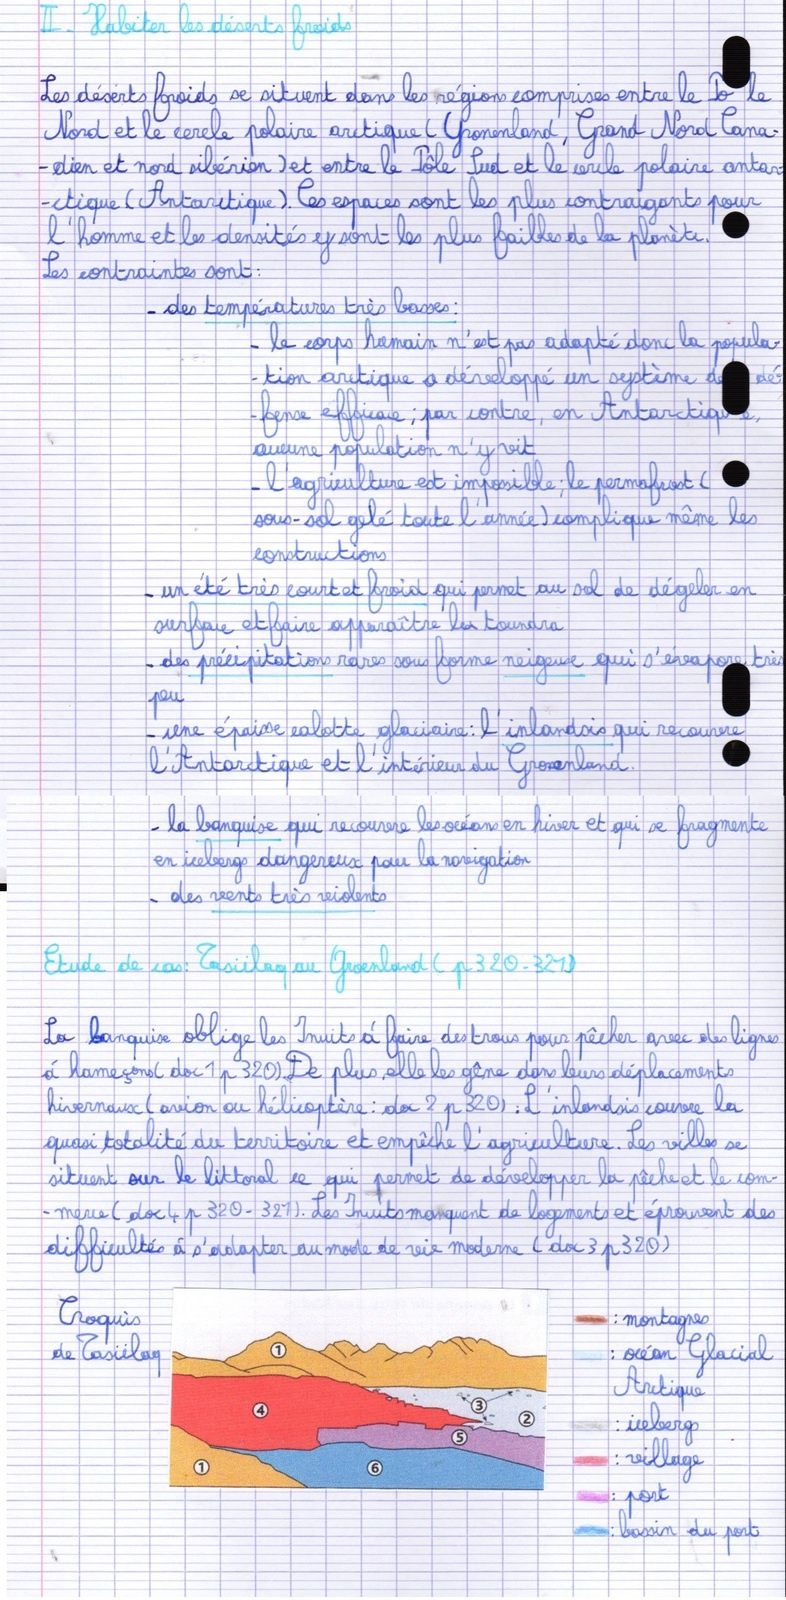 II - Habiter les déserts froids
Les déserts froids se situent dans les régions comprises entre le Pôle
Nord et le cercle polaire arctique (Gronenland, Grand Nord Cana-
-dien et nord sibérien) et entre le Pôle Sud et le cercle polaire antar-
-ctique (Antarctique). Ces espaces sont les plus contraigants pour
l'homme et les densités y sont les plus faibles de la planète.
Les contraintes sont:
- des températures très basses:
- le corps humain n'est pas adapté donc la popula-
-tion arctique a développé un système de dé-
-fense efficace; par contre, en Antarctique,
aucune population n'y vit
- l'agriculture est impossible; le permafrost (
sous-sol gelé toute l'année) complique même les
constructions
- un été très court et froid qui permet au sol de dégeler en
surface et faire apparaître la toundra
- des précipitations rares sous forme neigeuse qui s'évapore très
peu
- une épaisse calotte glaciaire: l'inlandsis qui recouvre
l'Antarctique et l'intérieur du Groenland.
- la banquise qui recouvre les océans en hiver et qui se fragmente
en icebergs dangereux pour la navigation
- des vents très violents
Etude de cas: Tasiilaq au Groenland (p 320-321)
La banquise oblige les Inuits à faire des trous pour pêcher avec des lignes
à hameçons (doc 1 p 320). De plus, elle les gêne dans leurs déplacements
hivernaux (avion ou hélicoptère: doc 2 p 320). L'inlandsis couvre la
quasi totalité du territoire et empêche l'agriculture. Les villes se
situent sur le littoral ce qui permet de développer la pêche et le com-
-merce (doc 4 p 320-321). Les Inuits manquent de logements et éprouvent des
difficultés à s'adapter au mode de vie moderne (doc 3 p 320)
Croquis
de Tasiilaq
1
4
3
2
5
1
6
: montagnes
: océan Glacial
Arctique
: icebergs
: village
: port
: bassin du port